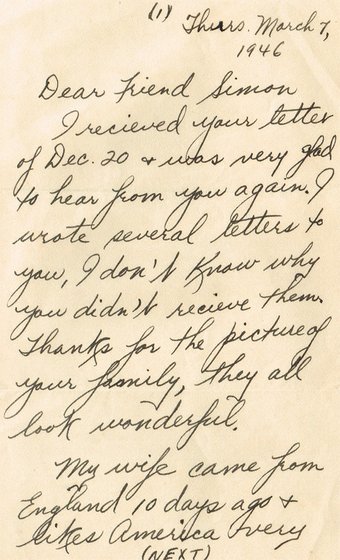 (1)
Thurs. March 7,
1946
Dear Friend Simon
I recieved your letter
of Dec. 20 + was very glad
to hear from you again. I
wrote several letters to
you, I don't know why
you didn't recieve them.
Thanks for the picture of
your family, they all
look wonderful.
My wife came from
England 10 days ago +
likes America very
(NEXT)